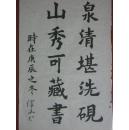 泉清堪洗硯
山秀可藏書
時在庚辰之冬